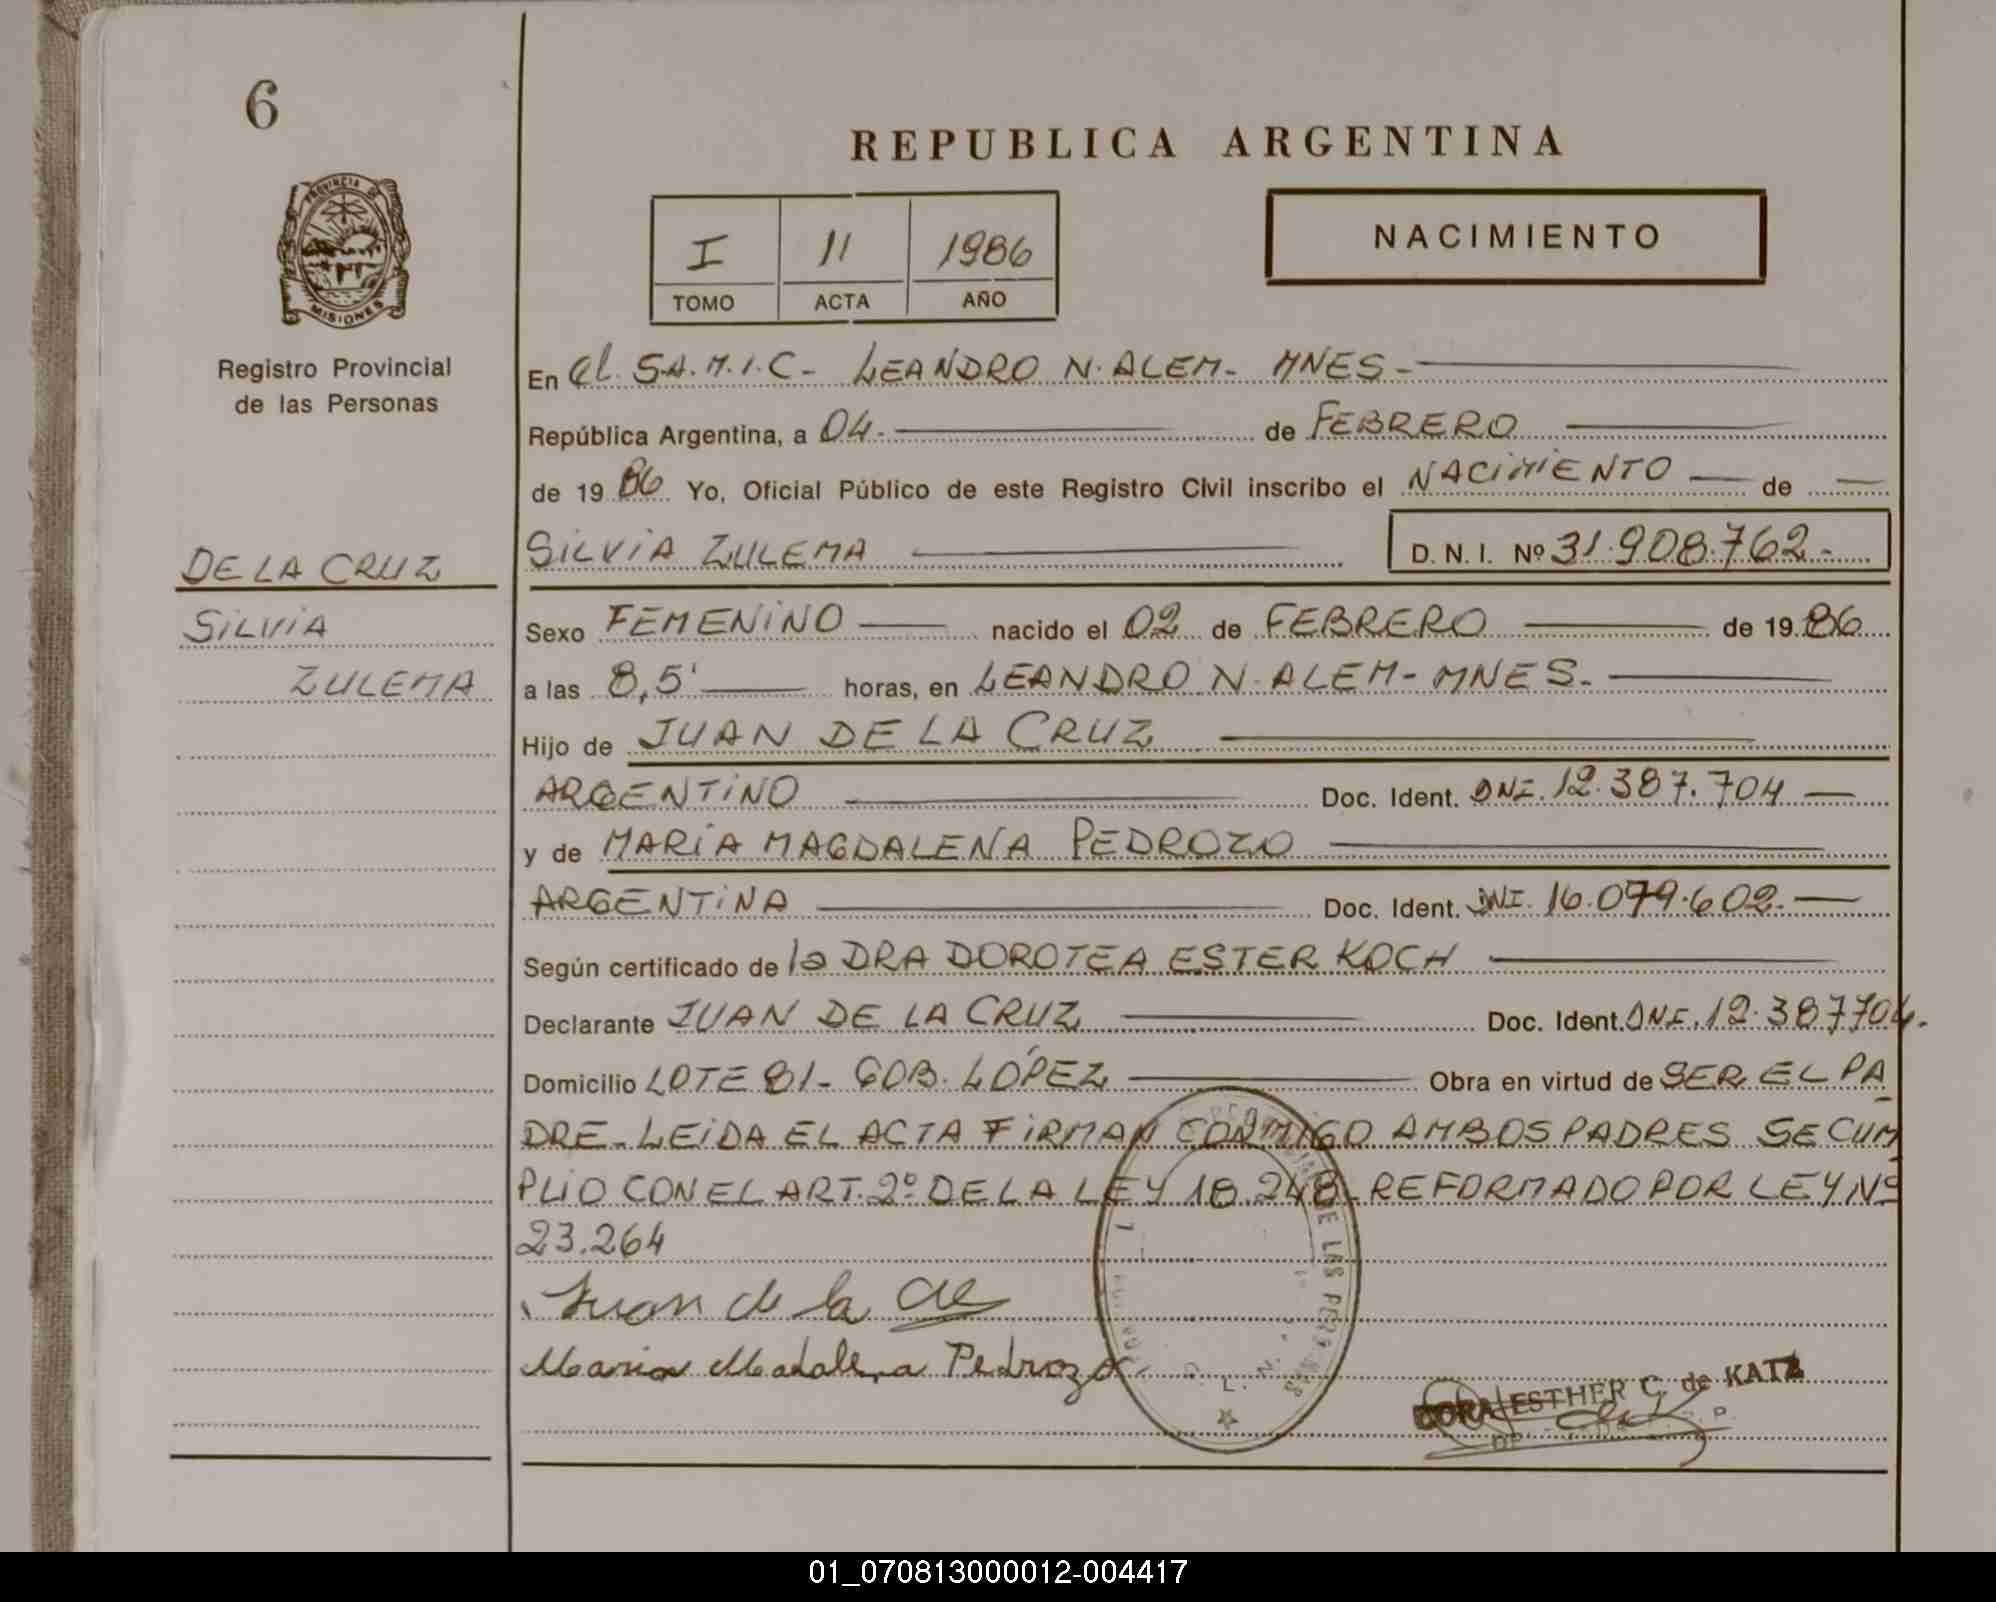 6
REPUBLICA ARGENTINA
PROVINCIA DE
MISIONES
NACIMIENTO
I 11 1986
TOMO ACTA AÑO
Registro Provincial
de las Personas
En el S.A.M.I.C- LEANDRO N. ALEM- MNES-
República Argentina, a 04- de FEBRERO
de 1986 Yo, Oficial Público de este Registro Civil inscribo el NACIMIENTO de
DE LA CRUZ
SILVIA ZULEMA D. N. I. Nº 31.908.762-
SILVIA
ZULEMA
Sexo FEMENINO nacido el 02 de FEBRERO de 1986
a las 8,5' horas, en LEANDRO N. ALEM- MNES-
Hijo de JUAN DE LA CRUZ
ARGENTINO Doc. Ident. DNI. 12.387.704
y de MARIA MAGDALENA PEDROZO
ARGENTINA Doc. Ident. DNI. 16.079.602-
Según certificado de la DRA DOROTEA ESTER KOCH
Declarante JUAN DE LA CRUZ Doc. Ident. DNI. 12.387704.
Domicilio LOTE 81- GOB. LÓPEZ Obra en virtud de SER EL PA
DRE- LEIDA EL ACTA FIRMAN CONMIGO AMBOS PADRES SE CUM
PLIO CON EL ART. 2º DE LA LEY 18.248- REFORMADO POR LEY Nº
23.264
Juan de la
Maria Madalena Pedrozo
DE LAS PERSONAS
L. N.
DORA ESTHER C. de KATZ
01_070813000012-004417